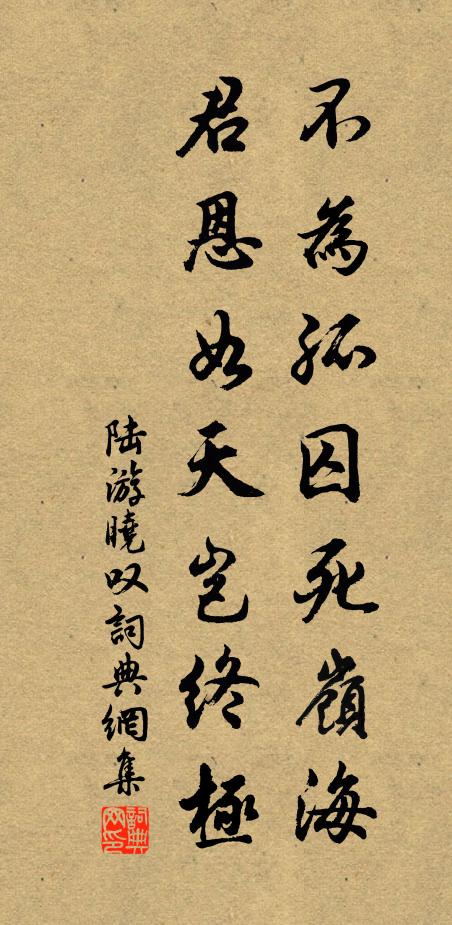 不為孤囚死嶺海
君恩如天豈終極
陆游曉叹詞典網集
詞典网印